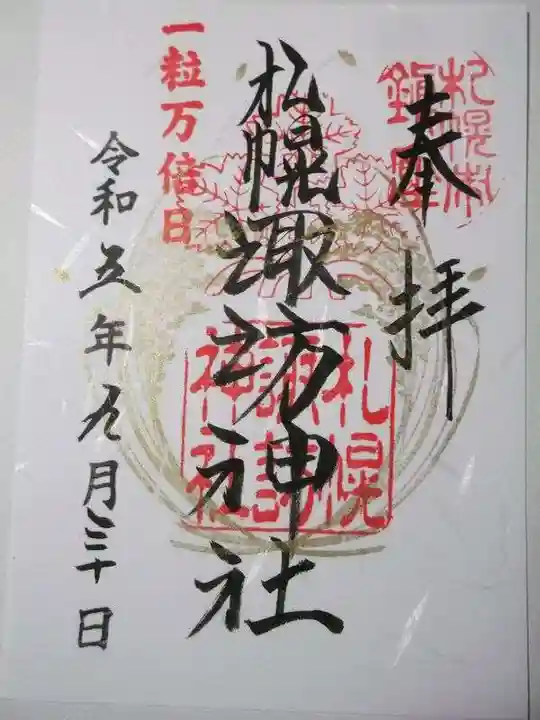 奉拝
札幌諏訪神社
一粒万倍日
令和五年九月三十日
札幌
諏訪
神社